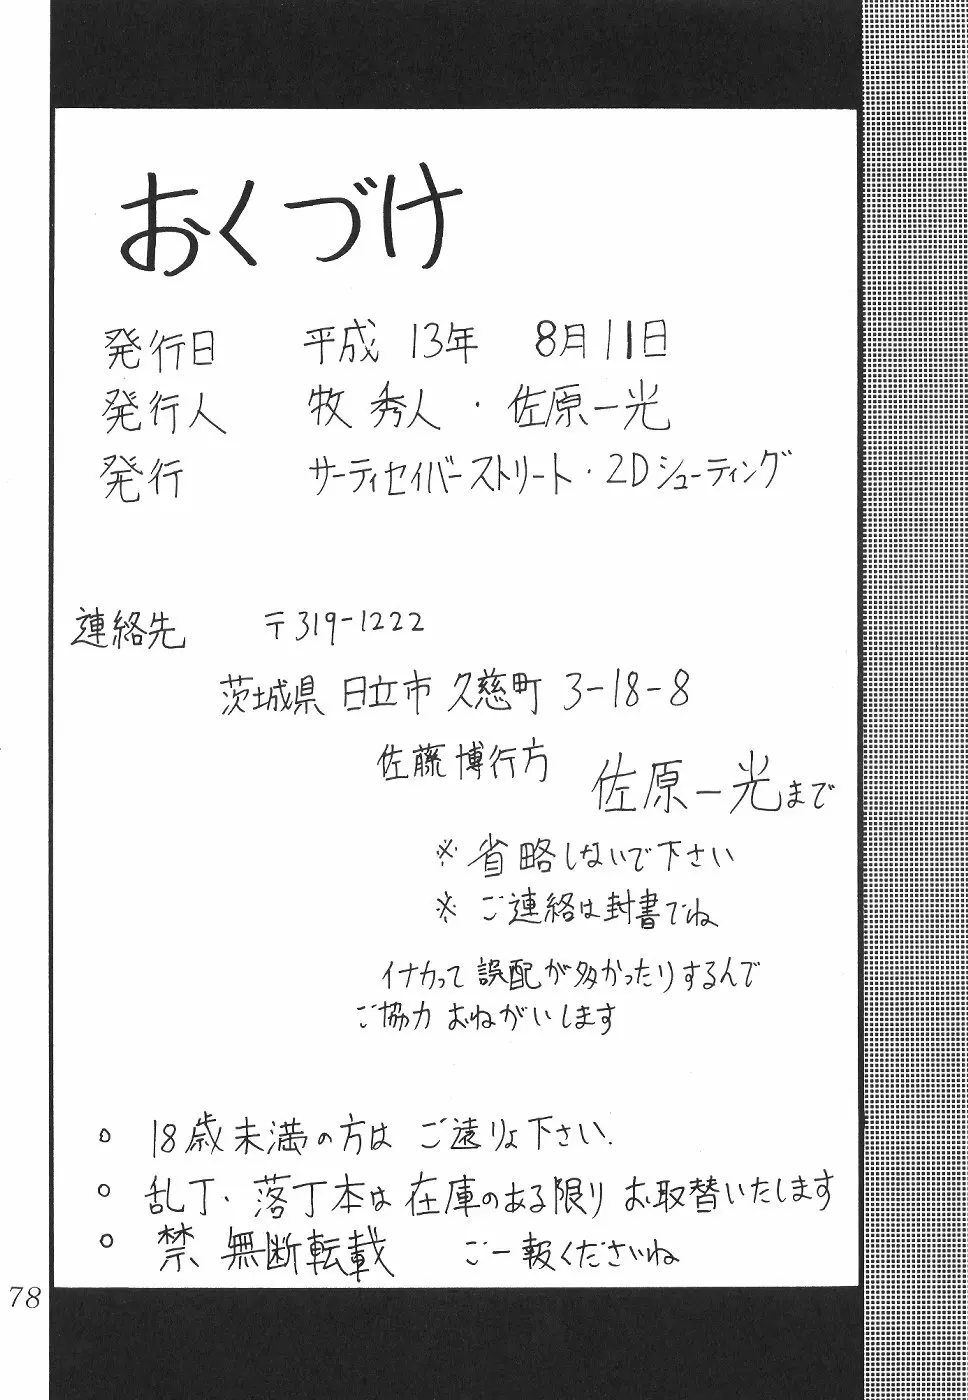 おくづけ
発行日 平成 13年 8月11日
発行人 牧 秀人・佐原一光
発行 サーティセイバーストリート・2Dシューティング
連絡先 〒319-1222
茨城県 日立市 久慈町 3-18-8
佐藤 博行方 佐原一光まで
※ 省略しないで下さい
※ ご連絡は封書でね
イナカって 誤配が多かったりするんで
ご協力 おねがいします
○ 18歳未満の方は ご遠りょ下さい.
○ 乱丁・落丁本は 在庫のある限り お取替いたします
○ 禁 無断転載 ご一報くださいね
78